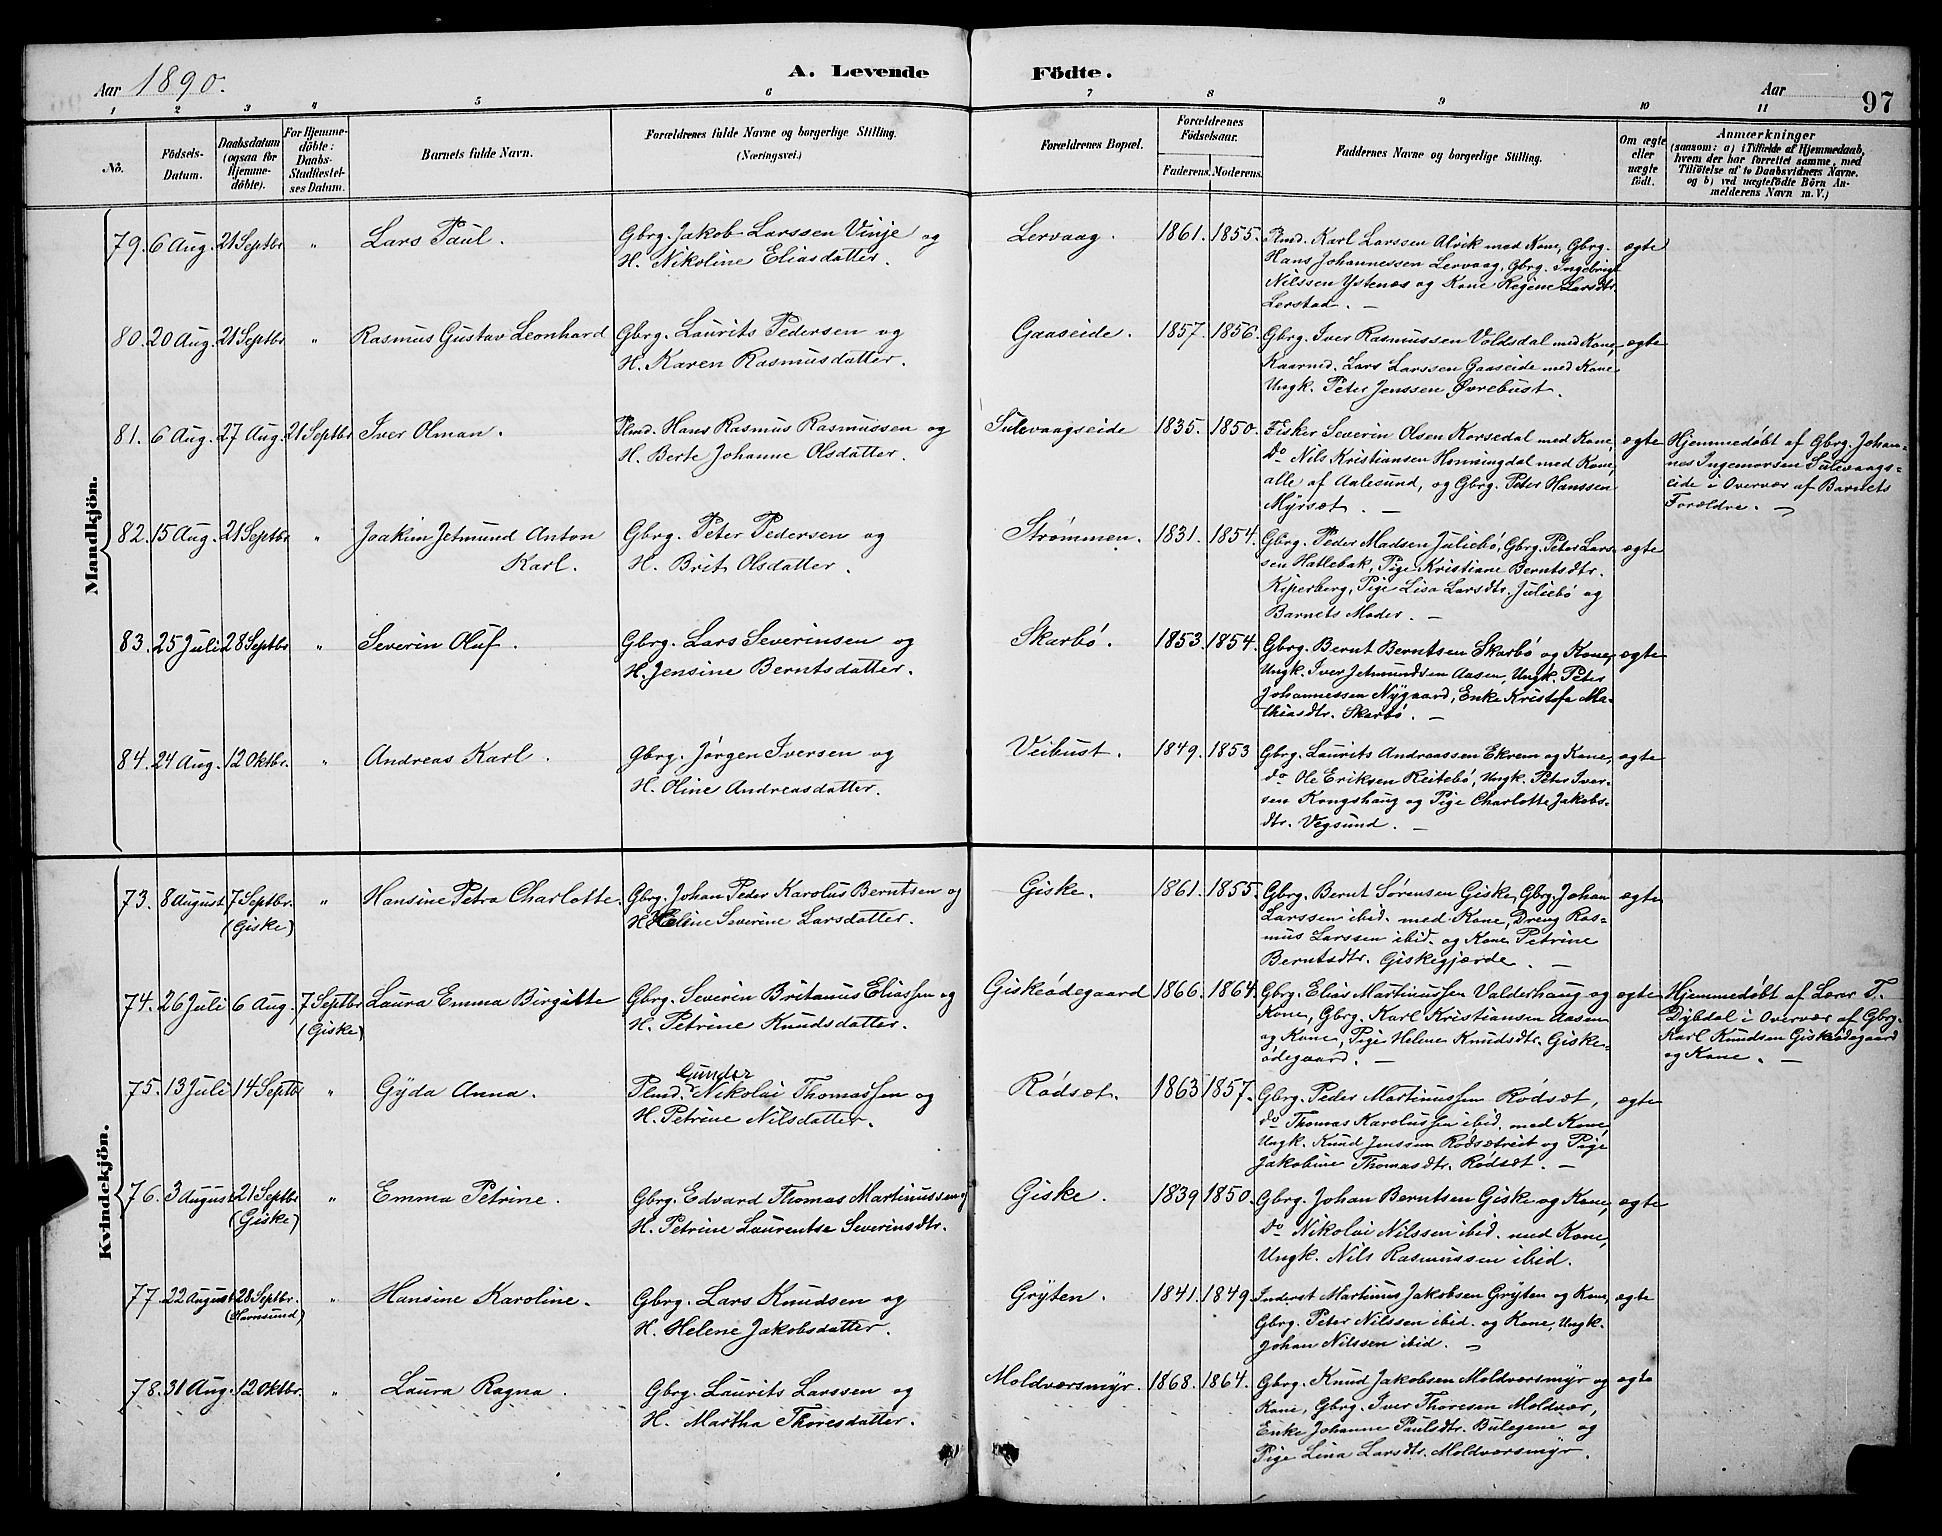 Aar 1890.
A. Levende Födte.
Aar
97
1 2 3 4 5 6 7 8 9 10 11
No.
Födsels-
Datum.
Daabsdatum
(ogsaa for
Hjemme-
döbte).
For Hjemme-
döbte:
Daabs-
Stadfæstel-
ses Datum.
Barnets fulde Navn.
Forældrenes fulde Navne og borgerlige Stilling.
(Næringsvei.)
Forældrenes Bopæl.
Forældrenes
Födselsaar.
Faderens.
Moderens.
Faddernes Navne og borgerlige Stilling.
Om ægte
eller
uægte
födt.
Anmærkninger
(saasom: a) i Tilfælde af Hjemmedaab,
hvem der har forrettet samme, med
Tilföielse af to Daabsvidners Navne.
og b) ved uægtefödte Börn An-
melderens Navn m. V.)
Mandkjön.
79. 6 Aug. 21 Septbr. " Lars Paul.
Gbrg. Jakob Larssen Vinje og
H. Nikoline Eliasdatter.
Lervaag. 1861. 1855.
Plmd. Karl Larssen Alvik med Kone, Gbrg.
Hans Johannessen Lervaag, Gbrg. Ingebrigt
Nilssen Ystenæs og Kone Regine Larsdtr.
Lerstad. —
ægte
80. 20 Aug. 21 Septbr. " Rasmus Gustav Leonhard
Gbrg. Laurits Pedersen og
H. Karen Rasmusdatter.
Gaaseide. 1857. 1856.
Gbrg. Iver Rasmussen Voldsdal med Kone,
Kaarmd. Lars Larssen Gaaseide med Kone
Ungk. Peter Jenssen Øvrebust.
ægte
81. 6 Aug. 27 Aug. 21 Septbr. Iver Olman.
Plmd. Hans Rasmus Rasmussen og
H. Berte Johanne Olsdatter.
Sulevaagseide 1835. 1850.
Fisker Severin Olsen Korsedal med Kone,
Do Nils Kristiansen Honningdal med Kone,
alle af Aalesund, og Gbrg. Peter Hanssen
Myrsæt. —
ægte
Hjemmedøbt af Gbrg. Johan-
nes Ingemorsen Sulevaags-
eide i Overvær af Barnets
Forældre. —
82. 15 Aug. 21 Septbr. " Joakim Jetmund Anton
Karl.
Gbrg. Peter Pedersen og
H. Brit Olsdatter.
Strømmen. 1831. 1854.
Gbrg. Peder Madsen Juliebø, Gbrg. Peter Lars-
sen Hatlebak, Pige Kristiane Berntsdtr.
Kiperberg, Pige Lisa Larsdtr. Juliebø og
Barnets Moder. —
ægte
83. 25 Juli 28 Septbr " Severin Oluf.
Gbrg. Lars Severinsen og
H. Jensine Berntsdatter.
Skarbø. 1853. 1854.
Gbrg. Bernt Berntsen Skarbø og Kone,
Ungk. Iver Jetmundsen Aasen, Ungk. Peter
Johannessen Nygaard, Enke Kristofa Ma-
thiasdtr. Skarbø. —
ægte
84. 24 Aug. 12 Oktbr. " Andreas Karl.
Gbrg. Jørgen Iversen og
H. Oline Andreasdatter.
Veibust. 1849. 1853
Gbrg. Laurits Andreassen Ekrem og Kone,
do Ole Eriksen Reitebø, Ungk. Peter Iver-
sen Kongshaug og Pige Charlotte Jakobs-
dtr. Vegsund. —
ægte
Kvindekjön.
73. 8 August 7 Septbr. (Giske) " Hansine Petra Charlotte.
Gbrg. Johan Peder Karolus Berntsen og
H. Heline Severine Larsdatter.
Giske. 1861. 1855.
Gbrg. Bernt Sørensen Giske, Gbrg. Johan
Larssen ibid. med Kone, Dreng Ras-
mus Larssen ibid. og Kone Petrine
Berntsdtr. Giskegjærde. —
ægte
74. 26 Juli 6 Aug. 7 Septbr (Giske) Laura Emma Birgitte
Gbrg. Severin Britanus Eliassen og
H. Petrine Knudsdatter.
Giskeødegaard 1866. 1864.
Gbrg. Elias Martinussen Valderhaug og
Kone, Gbrg. Karl Kristiansen Aasen
og Kone, Pige Helene Knudsdtr. Giske-
ødegaard. —
ægte
Hjemmedøbt af Lærer T.
Dybdal i Overvær af Gbrg.
Karl Knudsen Giskeødegaard
og Kone. —
75. 13 Juli 14 Septbr " Gyda Anna.
Gunder
Plmd. Nikolai Thomassen og
H. Petrine Nilsdatter.
Rødsæt. 1863 1857.
Gbrg. Peder Martinussen Rødsæt,
do Thomas Karolussen ibid. med Kone,
Ungk. Knud Jenssen Rødsætreit og Pige
Jakobine Thomasdtr. Rødsæt. —
ægte
76. 3 August 21 Septbr (Giske) " Emma Petrine.
Gbrg. Edvard Thomas Martinussen og
H. Petrine Laurentse Severinsdtr.
Giske. 1839 1850.
Gbrg. Johan Berntsen Giske og Kone,
Do Nikolai Nilssen ibid. med Kone,
Ungk. Nils Rasmussen ibid.
ægte
77. 22 August 28 Septbr. (Havnsund) " Hansine Karoline.
Gbrg. Lars Knudsen og
H. Helene Jakobsdatter.
Gryten. 1841. 1849
Inderst Martinus Jakobsen Gryten og Kone,
Gbrg. Peter Nilssen ibid. og Kone, Ungk.
Johan Nilssen ibid. —
ægte
78. 31 Aug. 12 Oktbr. " Laura Ragna.
Gbrg. Laurits Larssen og
H. Martha Thoresdatter.
Moldværsmyr. 1868. 1864.
Gbrg. Knud Jakobsen Moldværsmyr og
Kone, Gbrg. Iver Thoresen Moldvær,
Enke Johanne Paulsdtr. Bulegene og
Pige Lina Larsdtr. Moldværsmyr.
ægte